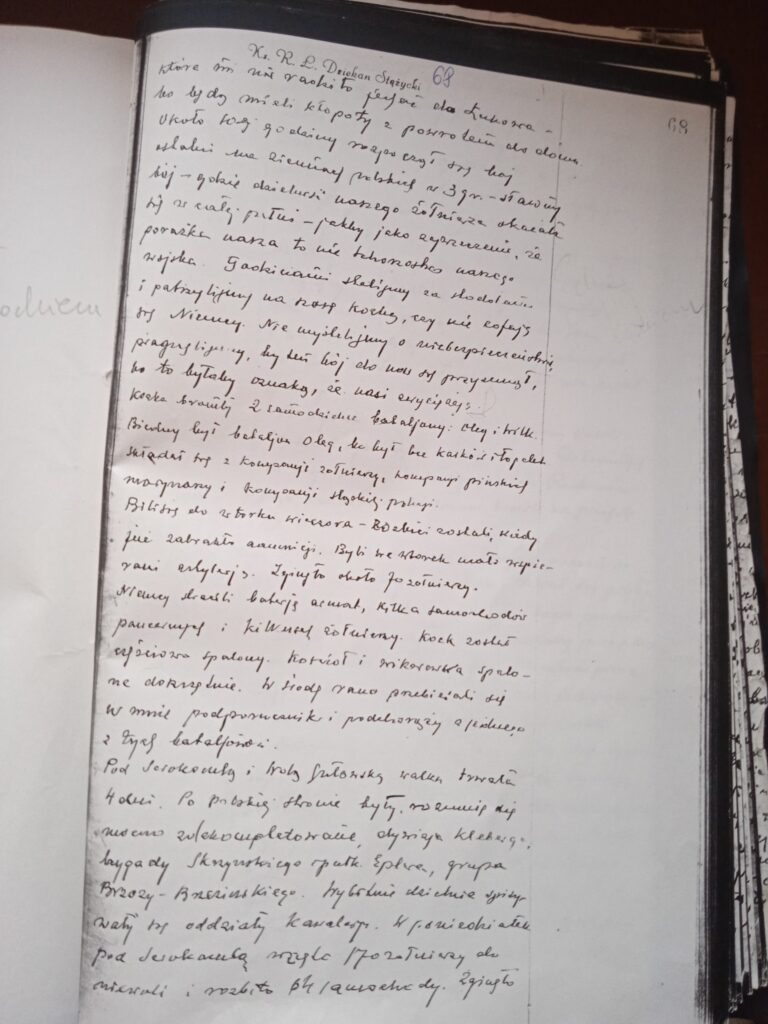 Ks. R. L. Dziekan Stężycki 68
68
które mi nie radziło jechać do Łukowa –
bo będę miał kłopoty z powrotem do domu
Około godziny rozpoczął się bój
ostatni na ziemiach polskich w 39 r. – sławny
bój – gdzie dzielność naszego żołnierza okazała
się w całej pełni – jakby jako zaprzeczenie, że
porażka nasza to nie tchórzostwo naszego
wojska. Godzinami staliśmy za stodołami
i patrzyliśmy na szosę kocką, czy nie cofają
się Niemcy. Nie myśleliśmy o niebezpieczeństwie,
pragnęliśmy, by ten bój do nas się przysunął,
bo to byłaby oznaka, że nasi zwyciężają.
Kocka broniły 2 samodzielne bataljony: Olek i Wilk.
Biedny był bataljon Olek, bo był bez kasków i łopatek
składał się z kompanji żołnierzy, kompanji pińskiej
marynarzy i kompanji śląskiej policji.
Bili się do wtorku wieczora – zostali, kiedy
już zabrakło amunicji. Byli we wtorek mało wspie-
rani artylerją. Zginęło około 70 żołnierzy.
Niemcy stracili baterję armat, kilka samochodów
pancernych i kilkuset żołnierzy. Kock został
częściowo spalony. Kościół i wikarówka spalo-
ne doszczętnie. W środę rano przebierali się
u mnie podporucznik i podchorąży z jednego
z tych bataljonów.
Pod Serokomlą i Wolą Gułowską walka trwała
4 dni. Po polskiej stronie były, rozumie się
mocno zdekompletowane, dywizja Kleberga,
brygady Skrzyńskiego i pułk. Eplera, grupa
Brzozy-Brzezińskiego. Wybitnie dzielnie spisy-
wały się oddziały kawalerji. W poniedziałek
pod Serokomlą wzięto 170 żołnierzy do
niewoli i rozbito samochody. Zginęło